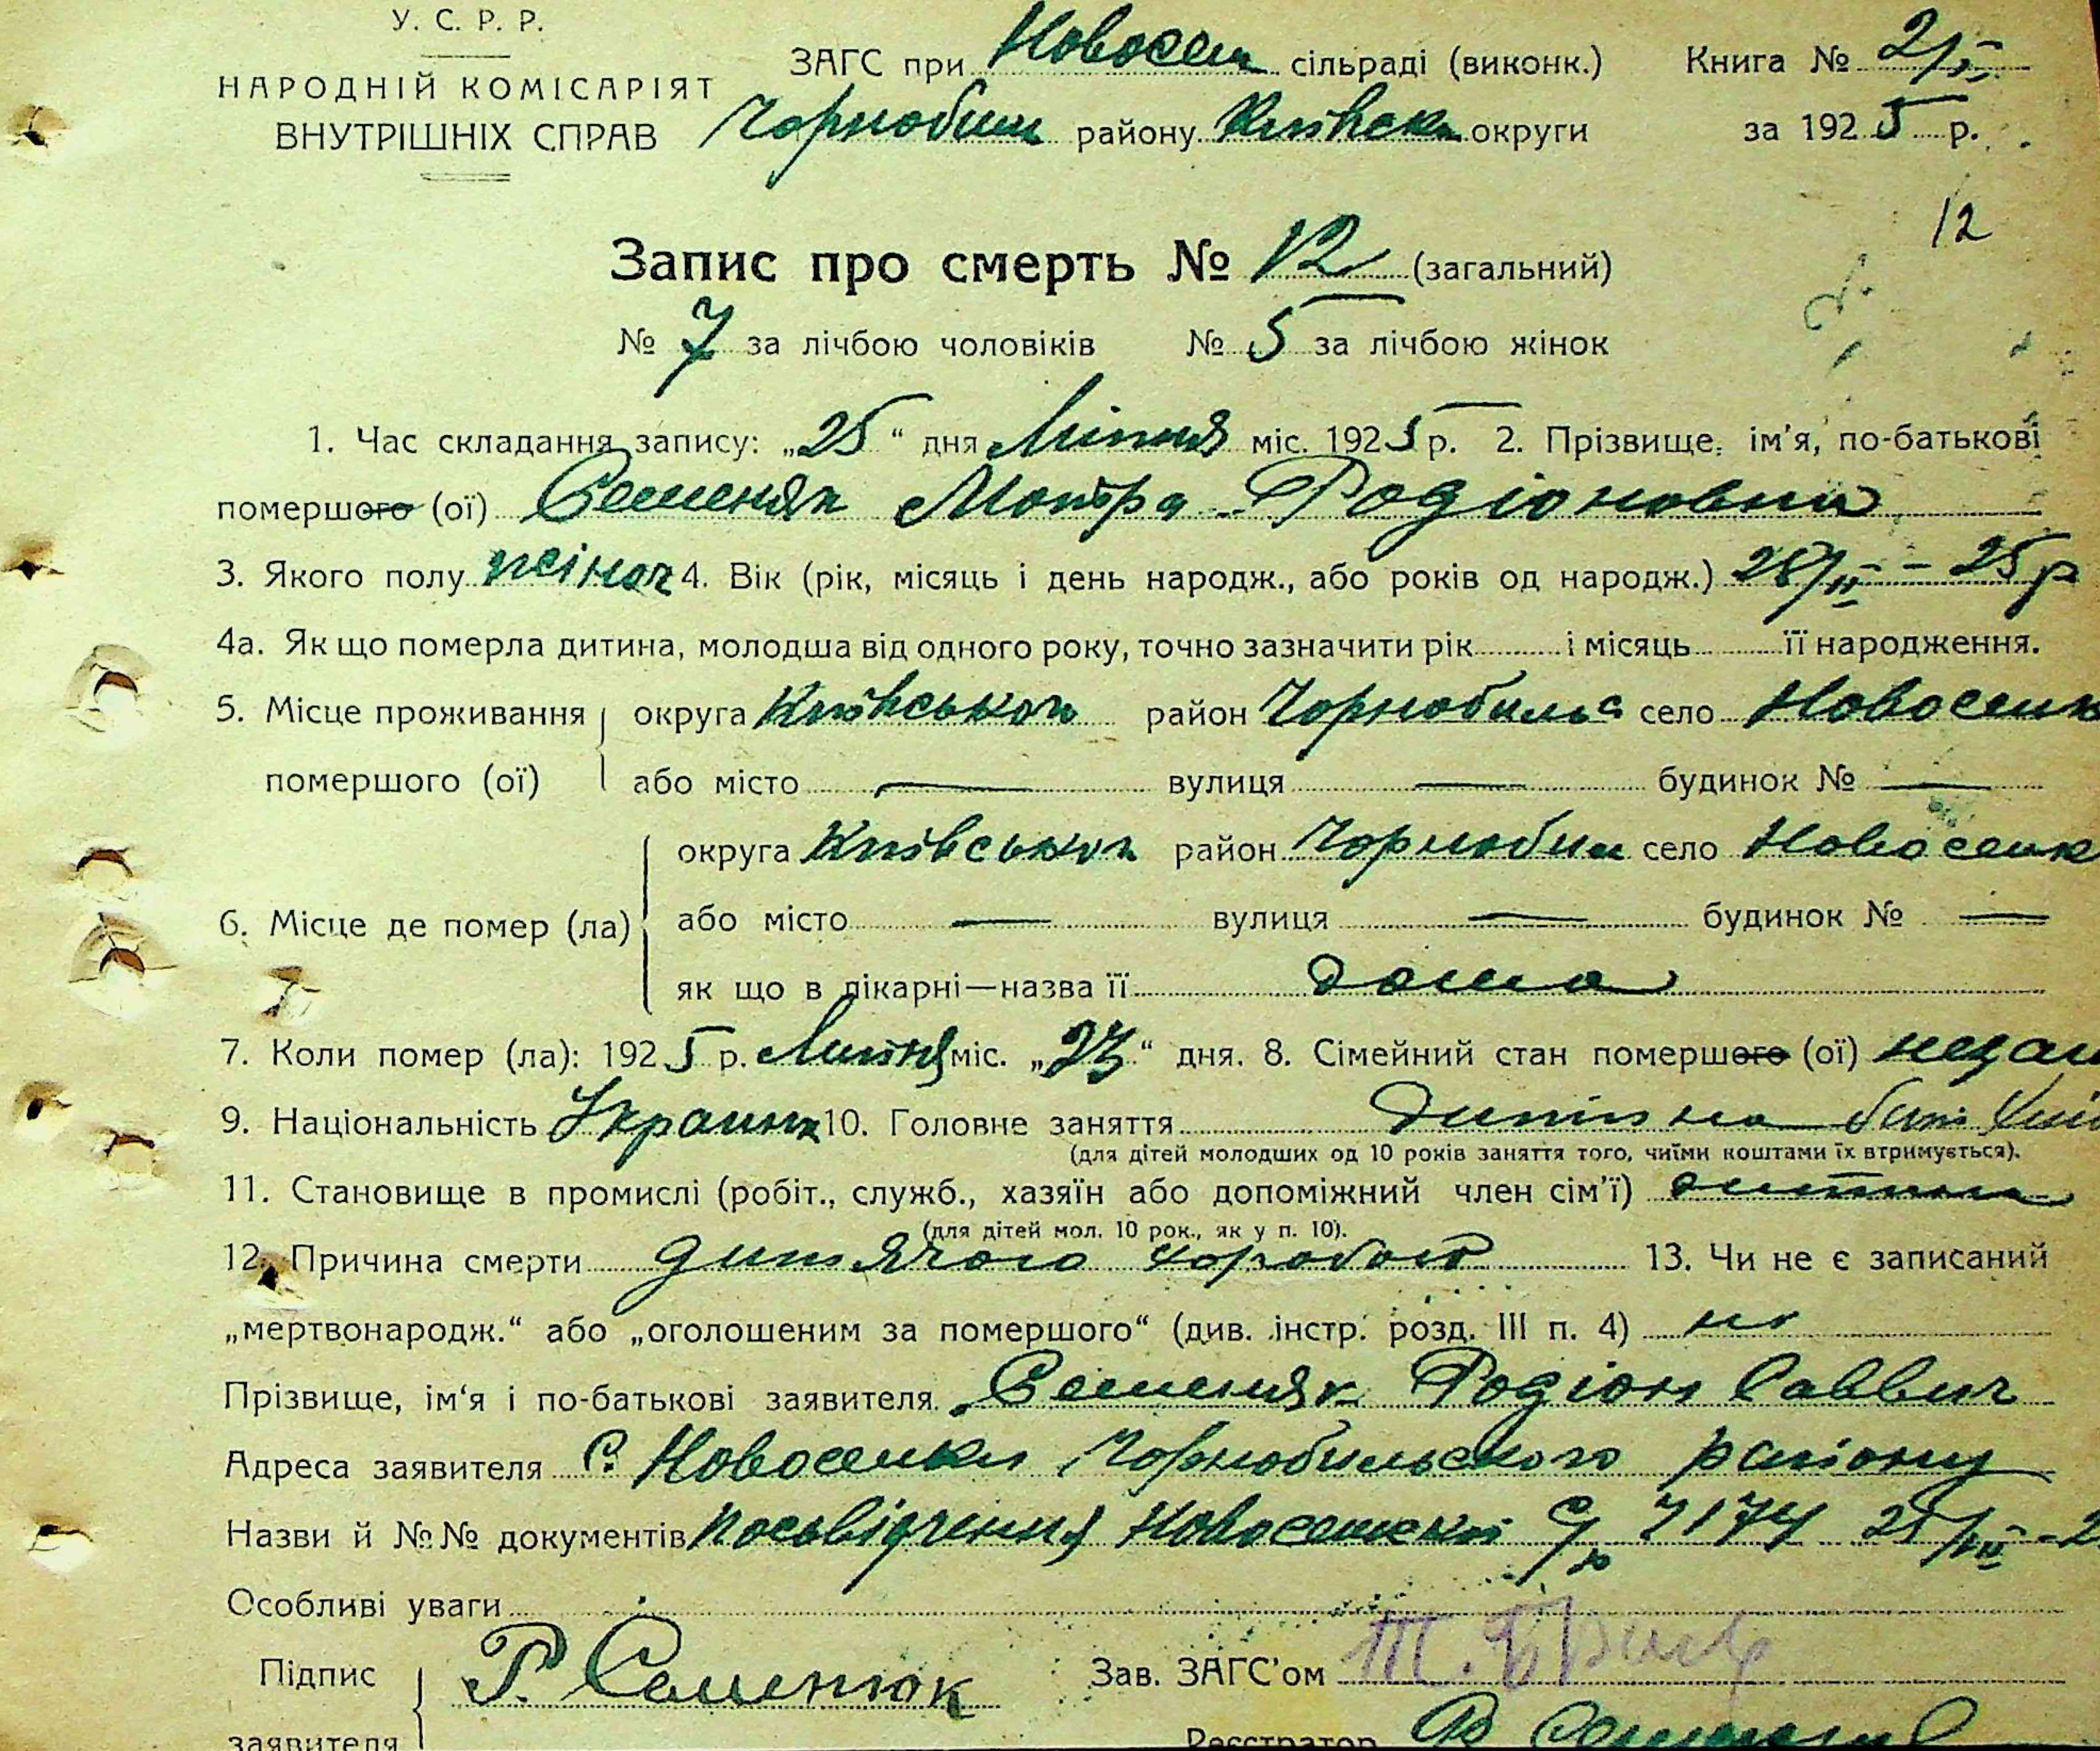 У. С. Р. Р.
НАРОДНІЙ КОМІСАРІЯТ
ВНУТРІШНІХ СПРАВ
ЗАГС при Новосел сільраді (виконк.) Книга №
Чорнобил району Київськ округи за 1925 р.
12
Запис про смерть № 12 (загальний)
№ 7 за лічбою чоловіків № 5 за лічбою жінок
1. Час складання запису: „25“ дня Липня міс. 1925 р. 2. Прізвище, ім'я, по-батькові
помершого (ої) Семеняк Мотря Родіоновна
3. Якого полу жіноч 4. Вік (рік, місяць і день народж., або років од народж.) 28/II – 25 р
4а. Як що померла дитина, молодша від одного року, точно зазначити рік і місяць її народження.
5. Місце проживання округа Київськой район Чорнобильс село Новоселк
помершого (ої) або місто — вулиця — будинок № —
округа Київськой район Чорнобил село Новоселк
6. Місце де помер (ла) або місто — вулиця — будинок № —
як що в лікарні—назва її дома
7. Коли помер (ла): 1925 р. Липня міс. „23“ дня. 8. Сімейний стан помершого (ої)
9. Національність Украинк 10. Головне заняття Дитина
(для дітей молодших од 10 років заняття того, чиїми коштами їх втримується).
11. Становище в промислі (робіт., служб., хазяїн або допоміжний член сім'ї) дитина
(для дітей мол. 10 рок., як у п. 10).
12. Причина смерти дитячого хоробой 13. Чи не є записаний
„мертвонародж.“ або „оголошеним за помершого“ (див. інстр. розд. III п. 4) ні
Прізвище, ім'я і по-батькові заявителя Семеняк Родіон Саввич
Адреса заявителя С. Новоселки Чорнобильского району
Назви й №№ документів посвідчення Новоселскої С/р 2174
Особливі уваги
Підпис Р. Семенюк Зав. ЗАГС'ом
заявителя Реєстратор